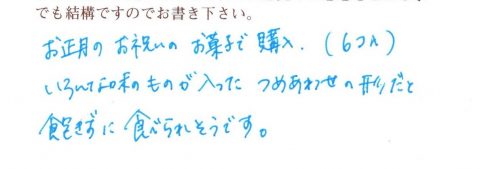 でも結構ですのでお書き下さい。
お正月の お祝いの お菓子で 購入.（6コ入）
いろいろな味のものが入った つめあわせの形だと
飽きずに 食べられそうです。